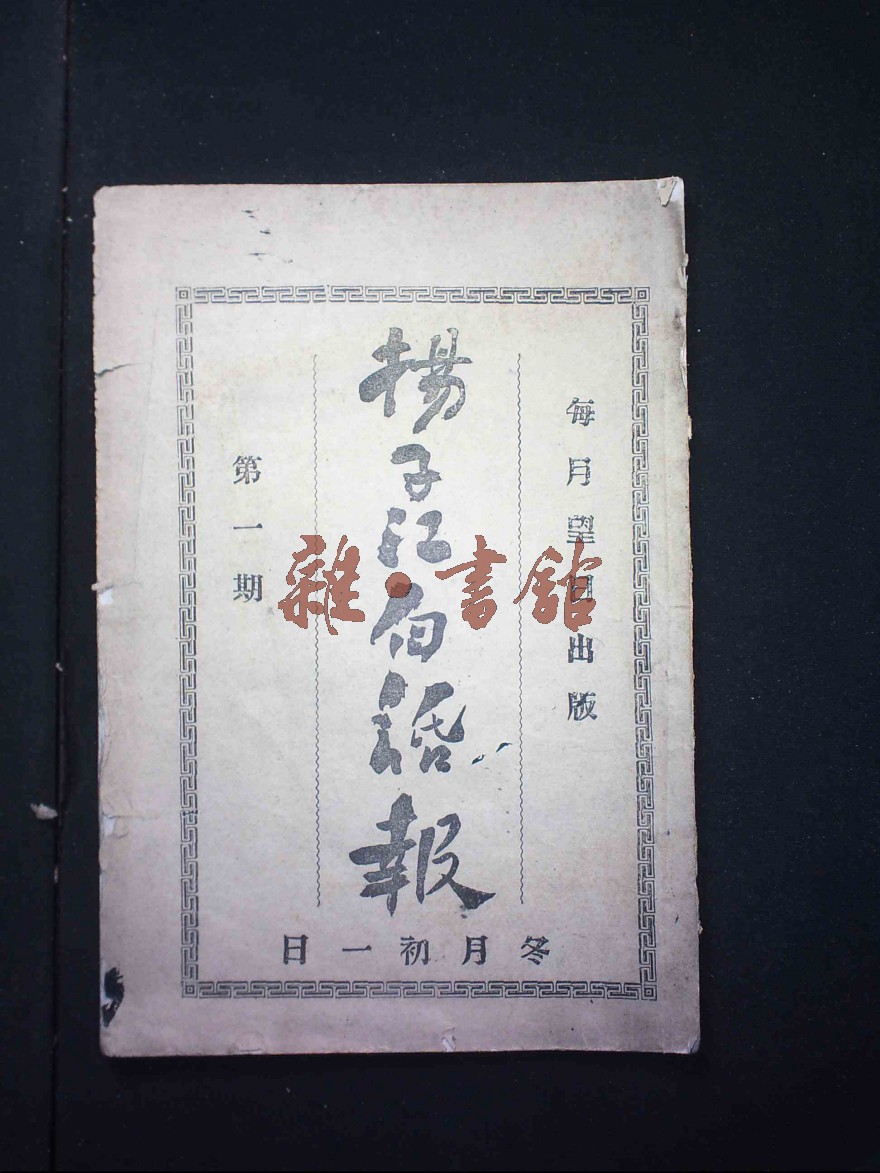 每月望日出版
揚子江白話報
第一期
冬月初一日
雜·書館